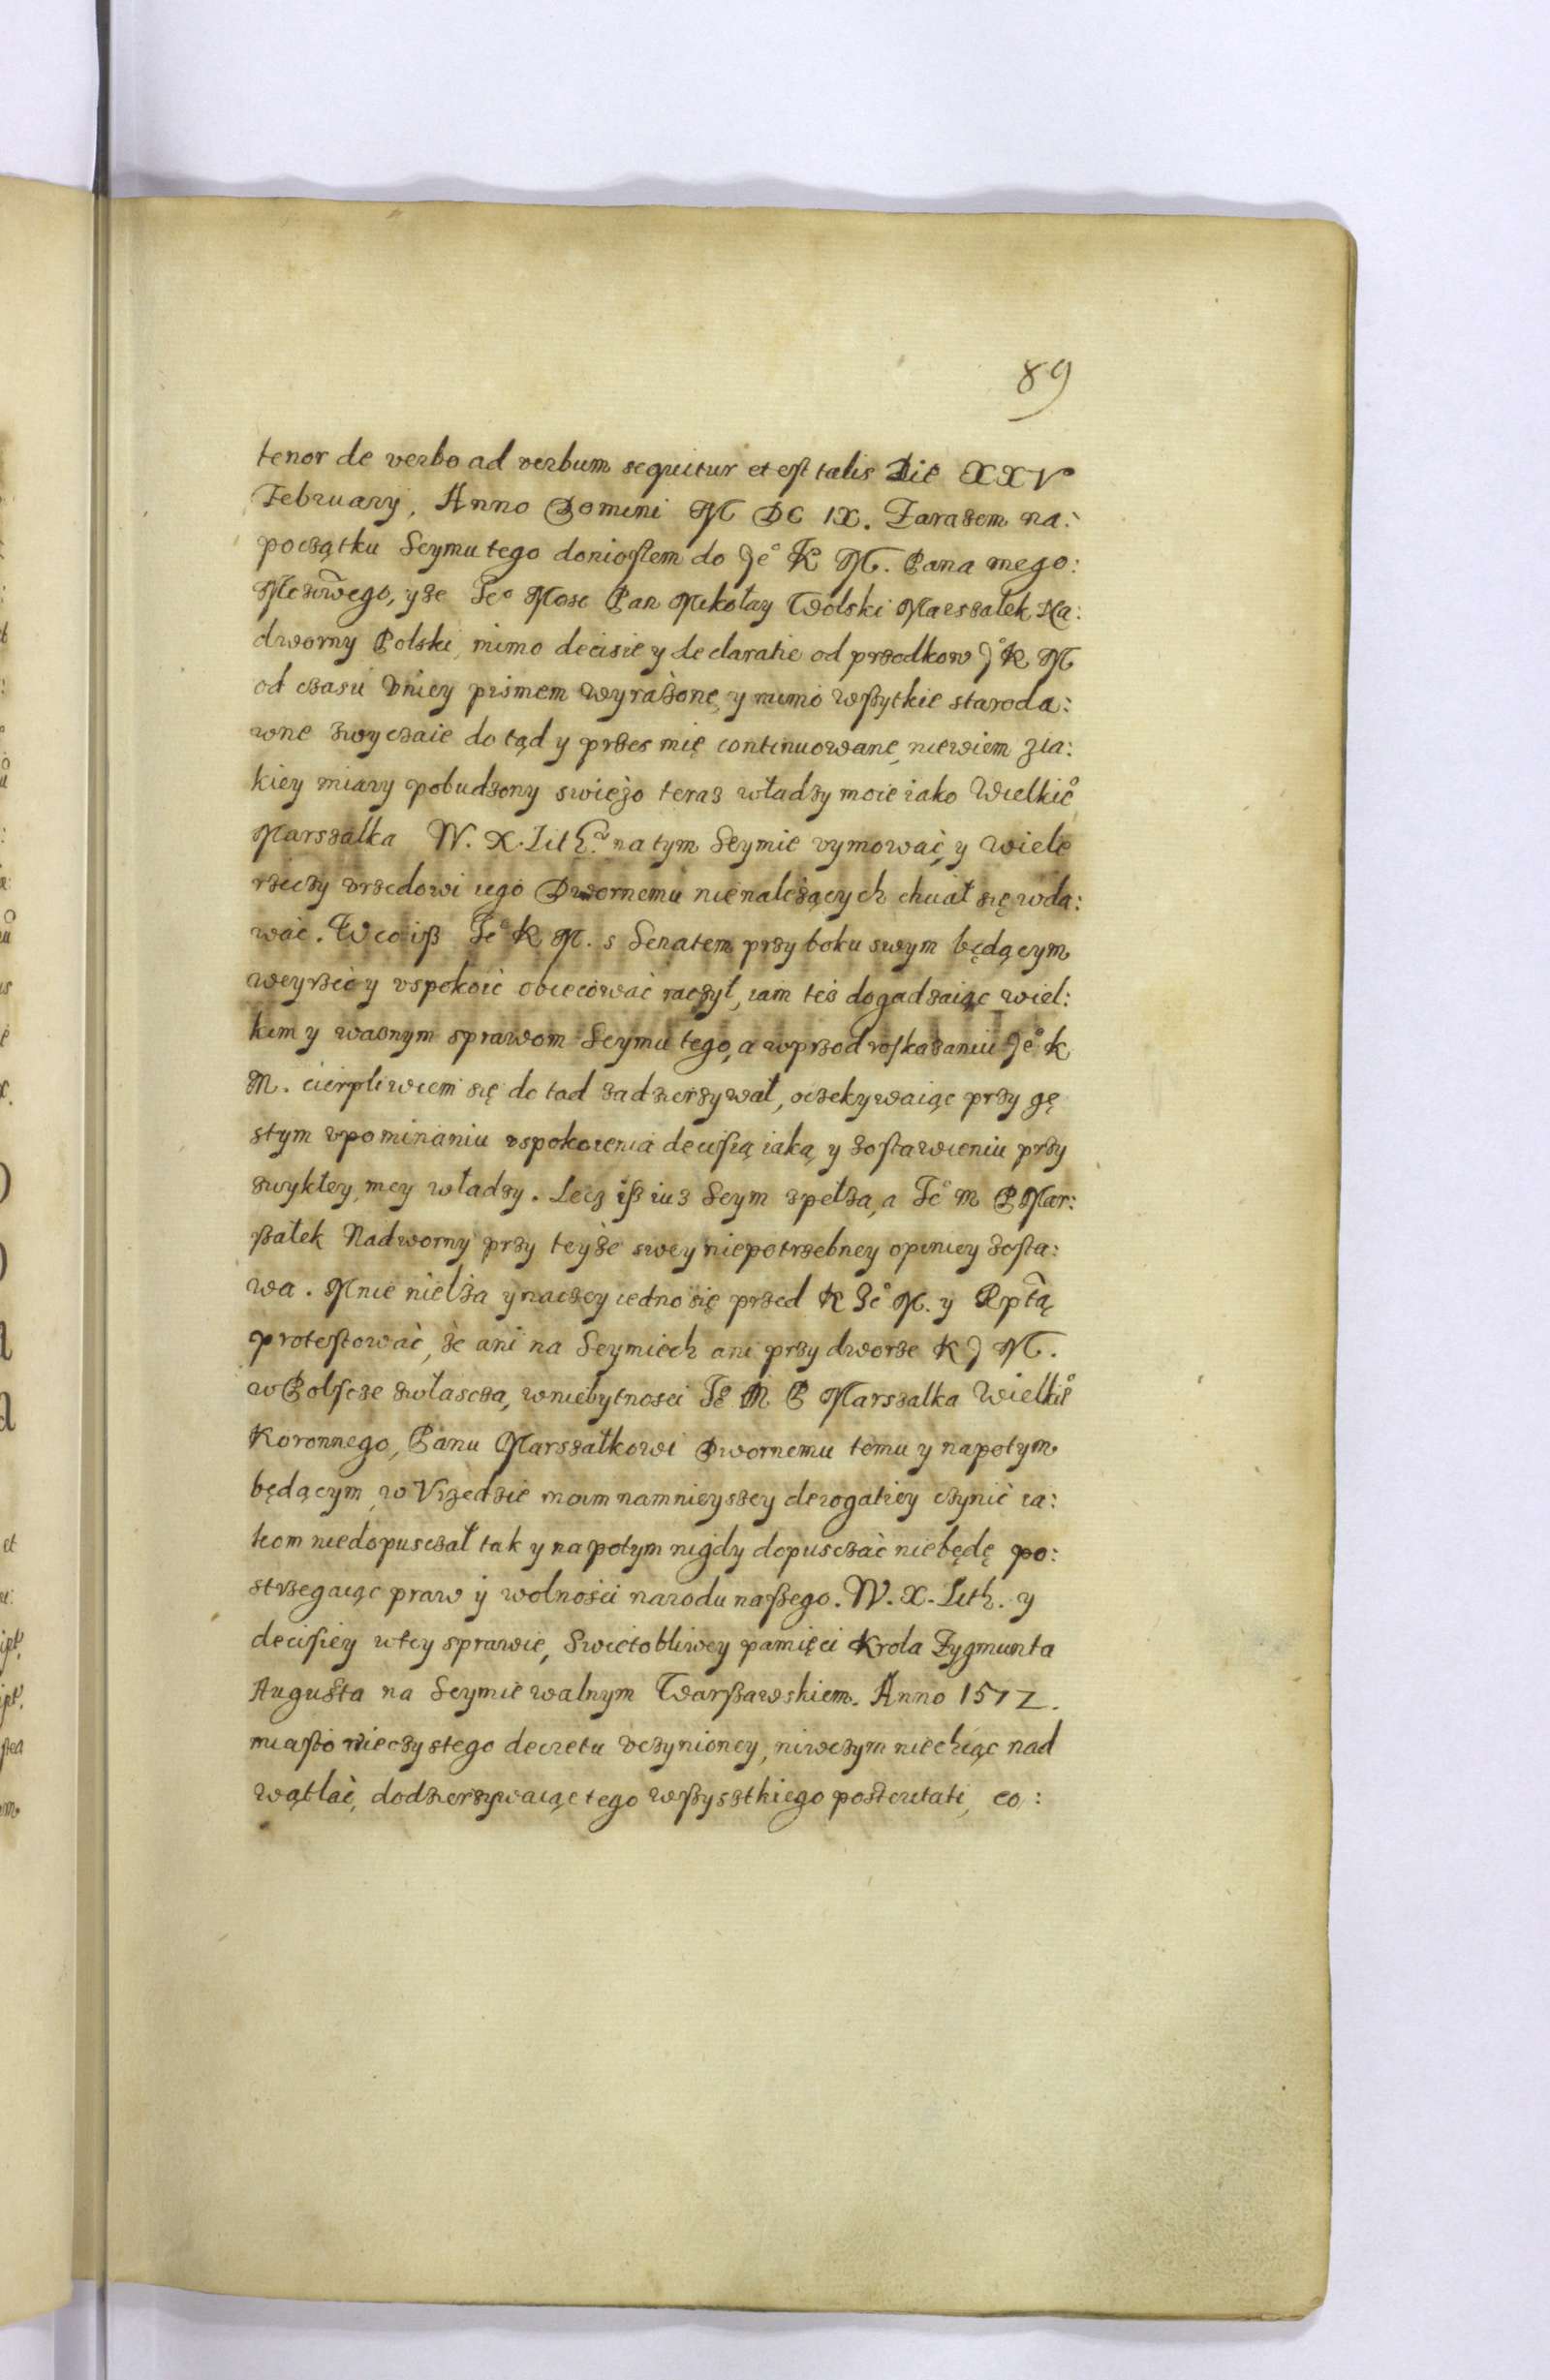 89
tenor de verbo ad verbum sequitur et est talis Die XXV
February, Anno Domini M DC IX. Zarazem na:
początku Seymu tego doniosłem do Je° K M. Pana mego:
Mcziwego, yze Je° Mosc Pan Mikołay Wolski Marszałek Na:
dworny Polski, mimo decisie y declaratie od przodkow J° K M
od czasu Vniey pismem wyrażone, y mimo wszytkie staroda:
wne zwyczaie do tąd y przes mię continuowane, niewiem zia:
kiey miary pobudzony swieżo teraz władzy moie iako Wielkie°
Marszalka W. X. Lith° na tym Seymie vymować, y wiele
rzeczy vrzedowi iego Dwornemu nienależących chciał się wda:
wać. W co iß Je° K M. s Senatem przy boku swym będącym
weyrzeć y vspokoić obiecować raczył, iam też dogadzaiąc wiel:
kim y waznym sprawom Seymu tego, a wprzod roskazaniu Je° K
M. cierpliwiem się do tad zadzierzywał, oczekywaiąc przy gę
stym vpominaniu vspokoienia decisią iaką y zostawieniu przy
zwykłey mey władzy. Lecz iß iuz Seym spełza, a Je° M P Mar:
ßałek Nadworny przy teyże swey niepotrzebney opiniey zosta:
wa. Mnie nielża ynaczey iedno się przed K Je° M. y Rptą
protestować, że ani na Seymiech ani przy dworze K J M.
w Polscze zwłascza, w niebytnosci Je° M P Marszalka Wielkie°
Koronnego, Panu Marszałkowi Dwornemu temu y napotym
będącym, w Vrzedzie moim namnieyszey derogatiey czynić ia:
kom niedopusczał tak y na potym nigdy dopusczać niebędę po:
strzegaiąc praw y wolności narodu naßego. W. X. Lith. y
decisiey w tey sprawie, Swietobliwey pamięci Krola Zygmunta
Augusta na Seymie walnym Warßawskiem. Anno 1572.
miasto wieczystego decretu vczynioney, niwczym niechcąc nad
wątlać, dodzierzywaiąc tego wßyszthiego posteritati, co: